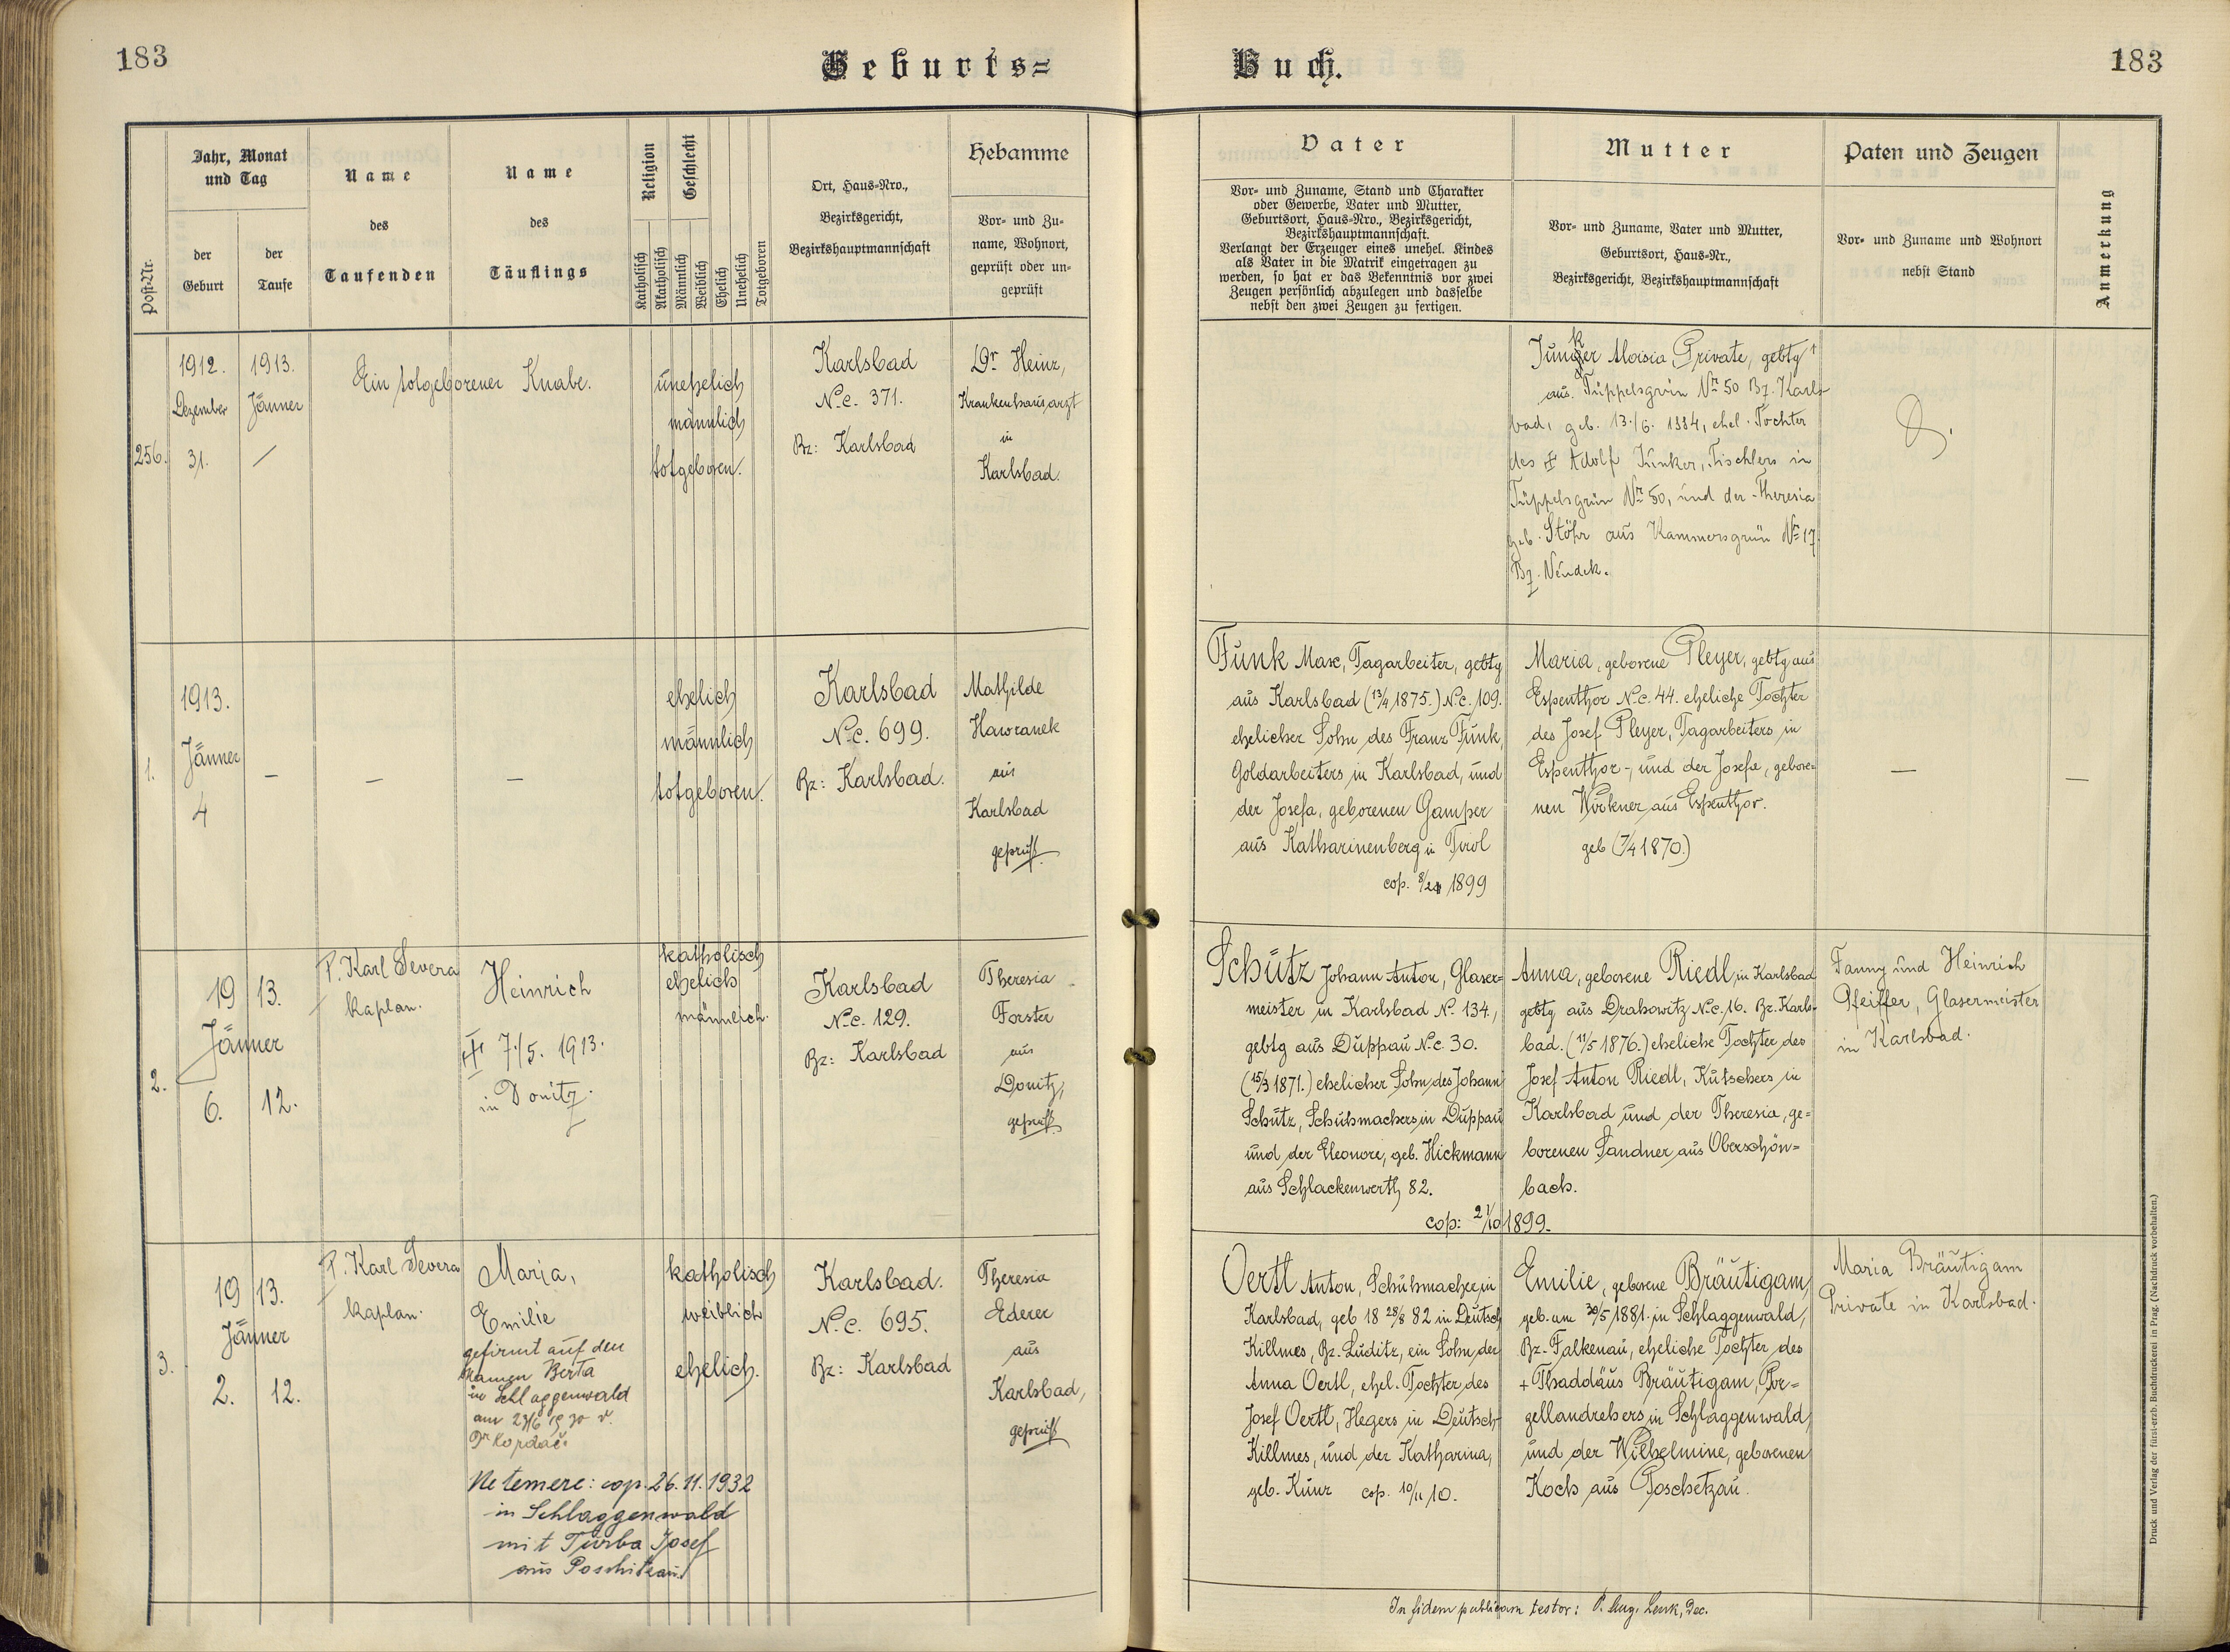 183
Geburts=
Buch.
183
Post-Nr.
Jahr, Monat
und Tag
der
Geburt
der
Taufe
Name
des
Taufenden
Name
des
Täuflings
Religion
Geschlecht
Katholisch
Akatholisch
Männlich
Weiblich
Ehelich
Unehelich
Totgeboren
Ort, Haus-Nro.,
Bezirksgericht,
Bezirkshauptmannschaft
Hebamme
Vor- und Zu-
name, Wohnort,
geprüft oder un-
geprüft
Vater
Vor- und Zuname, Stand und Charakter
oder Gewerbe, Vater und Mutter,
Geburtsort, Haus-Nro., Bezirksgericht,
Bezirkshauptmannschaft.
Verlangt der Erzeuger eines unehel. Kindes
als Vater in die Matrik eingetragen zu
werden, so hat er das Bekenntnis vor zwei
Zeugen persönlich abzulegen und dasselbe
nebst den zwei Zeugen zu fertigen.
Mutter
Vor- und Zuname, Vater und Mutter,
Geburtsort, Haus-Nr.,
Bezirksgericht, Bezirkshauptmannschaft
Paten und Zeugen
Vor- und Zuname und Wohnort
nebst Stand
Anmerkung
256.
1912.
Dezember
31.
1913.
Jänner
/
Ein totgeborener Knabe.
unehelich
männlich
totgeboren.
Karlsbad
N.c. 371.
Bz: Karlsbad
Dr Heinz,
Krankenhausarzt
in
Karlsbad.
Aloisia Private, gebtg
aus Tüppelsgrün Nr 50 Bz. Karls-
bad, geb. 13./6. 1884, ehel. Tochter
des Adolf Junker, Tischlers in
Tüppelsgrün Nr 50, und der Theresia
geb. Stöhr aus Kammersgrün Nr 17
Bz. Neudek.
1.
1913.
Jänner
4
–
–
–
ehelich
männlich
totgeboren.
Karlsbad
N.c. 699.
Bz: Karlsbad.
Mathilde
Hawranek
aus
Karlsbad
geprüft
Funk Max, Tagarbeiter, gebtg
aus Karlsbad (13/4 1875.) N.c. 109.
ehelicher Sohn des Franz Funk,
Goldarbeiters in Karlsbad, und
der Josefa, geborenen Gamper
aus Katharinenberg in Tirol
cop. 1899
Maria, geborene Pleyer, gebtg aus
Espenthor N.c. 44. eheliche Tochter
des Josef Pleyer, Tagarbeiters in
Espenthor-, und der Josefa, gebore-
nen Wirkner aus Espenthor.
geb (7/4 1870.)
–
–
2.
19 13.
Jänner
6. 12.
P. Karl Severa
Kaplan.
Heinrich
7./5. 1913.
in Donitz.
katholisch
ehelich
männlich.
Karlsbad
N.c. 129.
Bz: Karlsbad
Theresia
Forster
aus
Donitz,
geprüft
Schütz Johann Anton, Glaser-
meister in Karlsbad N. 134.,
gebtg aus Duppau N.c. 30.
(15/3 1871.) ehelicher Sohn des Johann
Schütz, Schuhmachers in Duppau
und der Eleonore, geb. Hickmann
aus Schlackenwerth 82.
cop: 21/10 1899.
Anna, geborene Riedl, in Karlsbad
gebtg aus Drahowitz N.c. 16. Bz. Karls-
bad. (11/5 1876.) eheliche Tochter des
Josef Anton Riedl, Kutschers in
Karlsbad und der Theresia, ge-
borenen Sandner aus Oberschön-
bach.
Fanny und Heinrich
Pfeiffer, Glasermeister
in Karlsbad.
3.
19 13.
Jänner
2. 12.
P. Karl Severa
Kaplan.
Maria,
Emilie
gefirmt auf den
Namen Berta
in Schlaggenwald
am 23/6 1930 v.
Dr Kordač.
Ne temere: cop. 26.11.1932
in Schlaggenwald
mit Turba Josef
aus Poschitzau
katholisch
weiblich
ehelich.
Karlsbad.
N.c. 695.
Bz: Karlsbad
Theresia
Ederer
aus
Karlsbad,
geprüft
Oertl Anton, Schuhmacher in
Karlsbad, geb 18 28/8 82 in Deutsch
Killmes, Bz. Luditz, ein Sohn der
Anna Oertl, ehel. Tochter des
Josef Oertl, Hegers in Deutsch-
Killmes, und der Katharina,
geb. Kunz cop. 10/11 10.
Emilie, geborene Bräutigam,
geb. am 30/5 1881. in Schlaggenwald,
Bz. Falkenau, eheliche Tochter des
+ Thaddäus Bräutigam, Por-
zellandrehers in Schlaggenwald,
und der Wilhelmine, geborenen
Koch aus Poschetzau.
Maria Bräutigam
Private in Karlsbad.
In fidem publicam testor: P. Aug. Lenk, Dec.
Druck und Verlag der fürst-erzb. Buchdruckerei in Prag. (Nachdruck vorbehalten.)